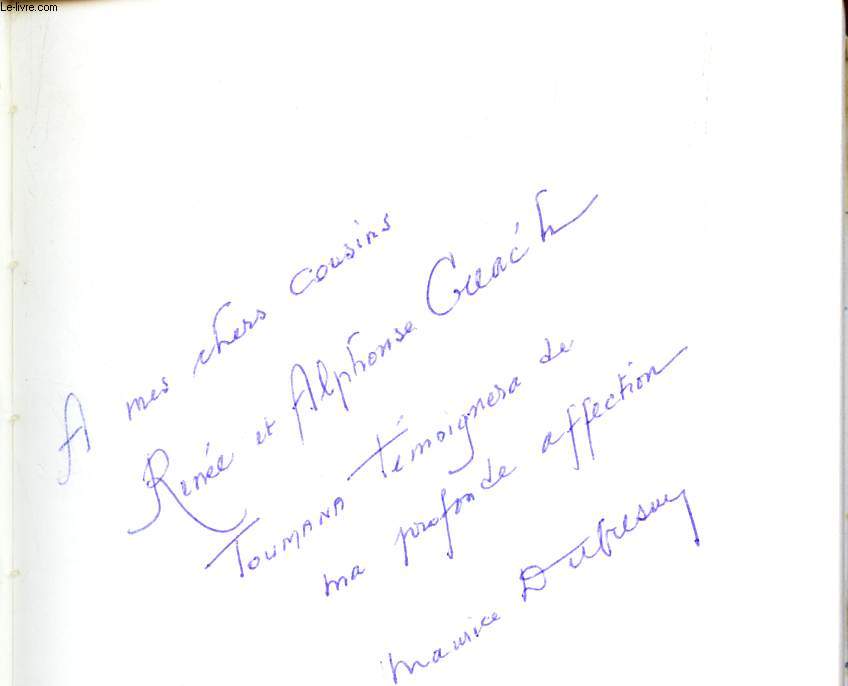 Le-livre.com
A mes chers cousins
Renée et Alphonse
TOUMANA témoignera de
ma profonde affection
Maurice